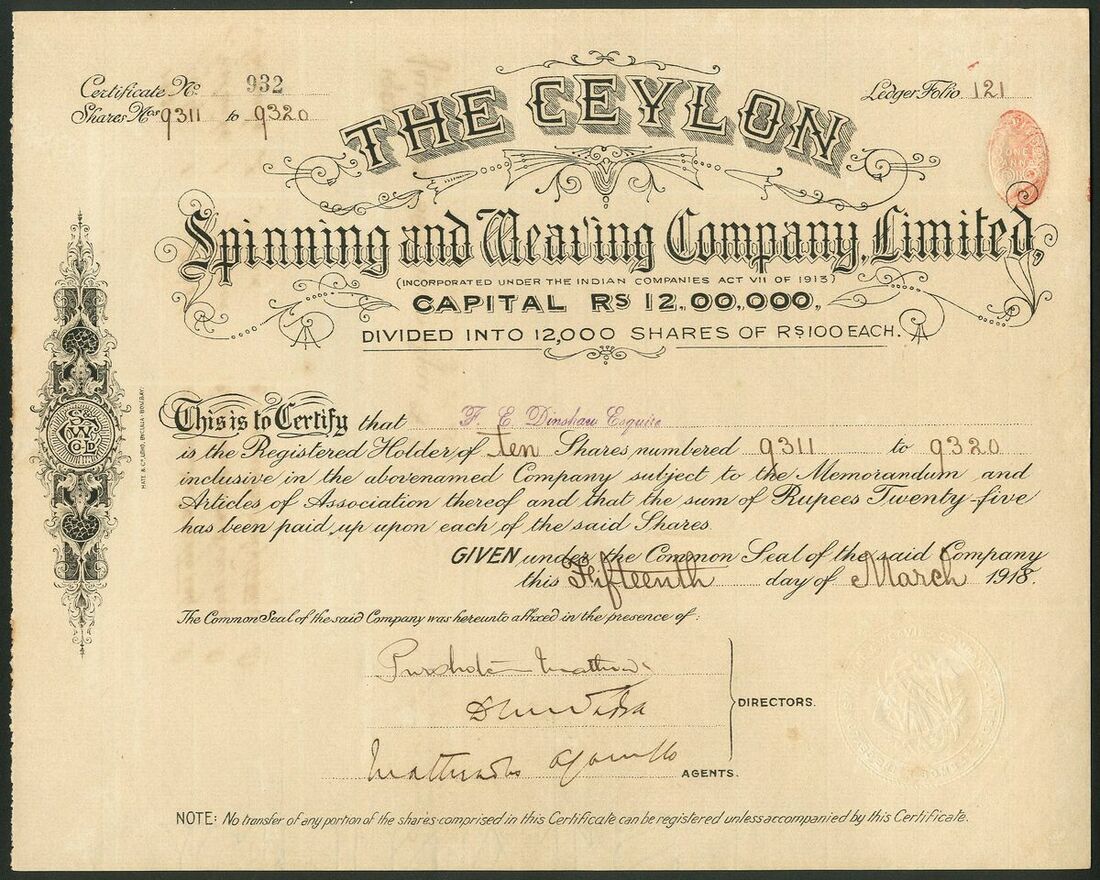 Certificate No. 932
Ledger Folio 121
Shares Nos 9311 to 9320
ONE ANNA
THE CEYLON
Spinning and Weaving Company, Limited,
(INCORPORATED UNDER THE INDIAN COMPANIES ACT VII OF 1913)
CAPITAL RS 12,00,000,
DIVIDED INTO 12,000 SHARES OF RS 100 EACH.
This is to Certify that F. E. Dinshaw Esquire
is the Registered Holder of ten Shares numbered 9311 to 9320
inclusive in the abovenamed Company subject to the Memorandum and
Articles of Association thereof and that the sum of Rupees Twenty-five
has been paid up upon each of the said Shares.
GIVEN under the Common Seal of the said Company
this Fifteenth day of March 1918.
The Common Seal of the said Company was hereunto affixed in the presence of:
DIRECTORS.
AGENTS.
NOTE: No transfer of any portion of the shares comprised in this Certificate can be registered unless accompanied by this Certificate.